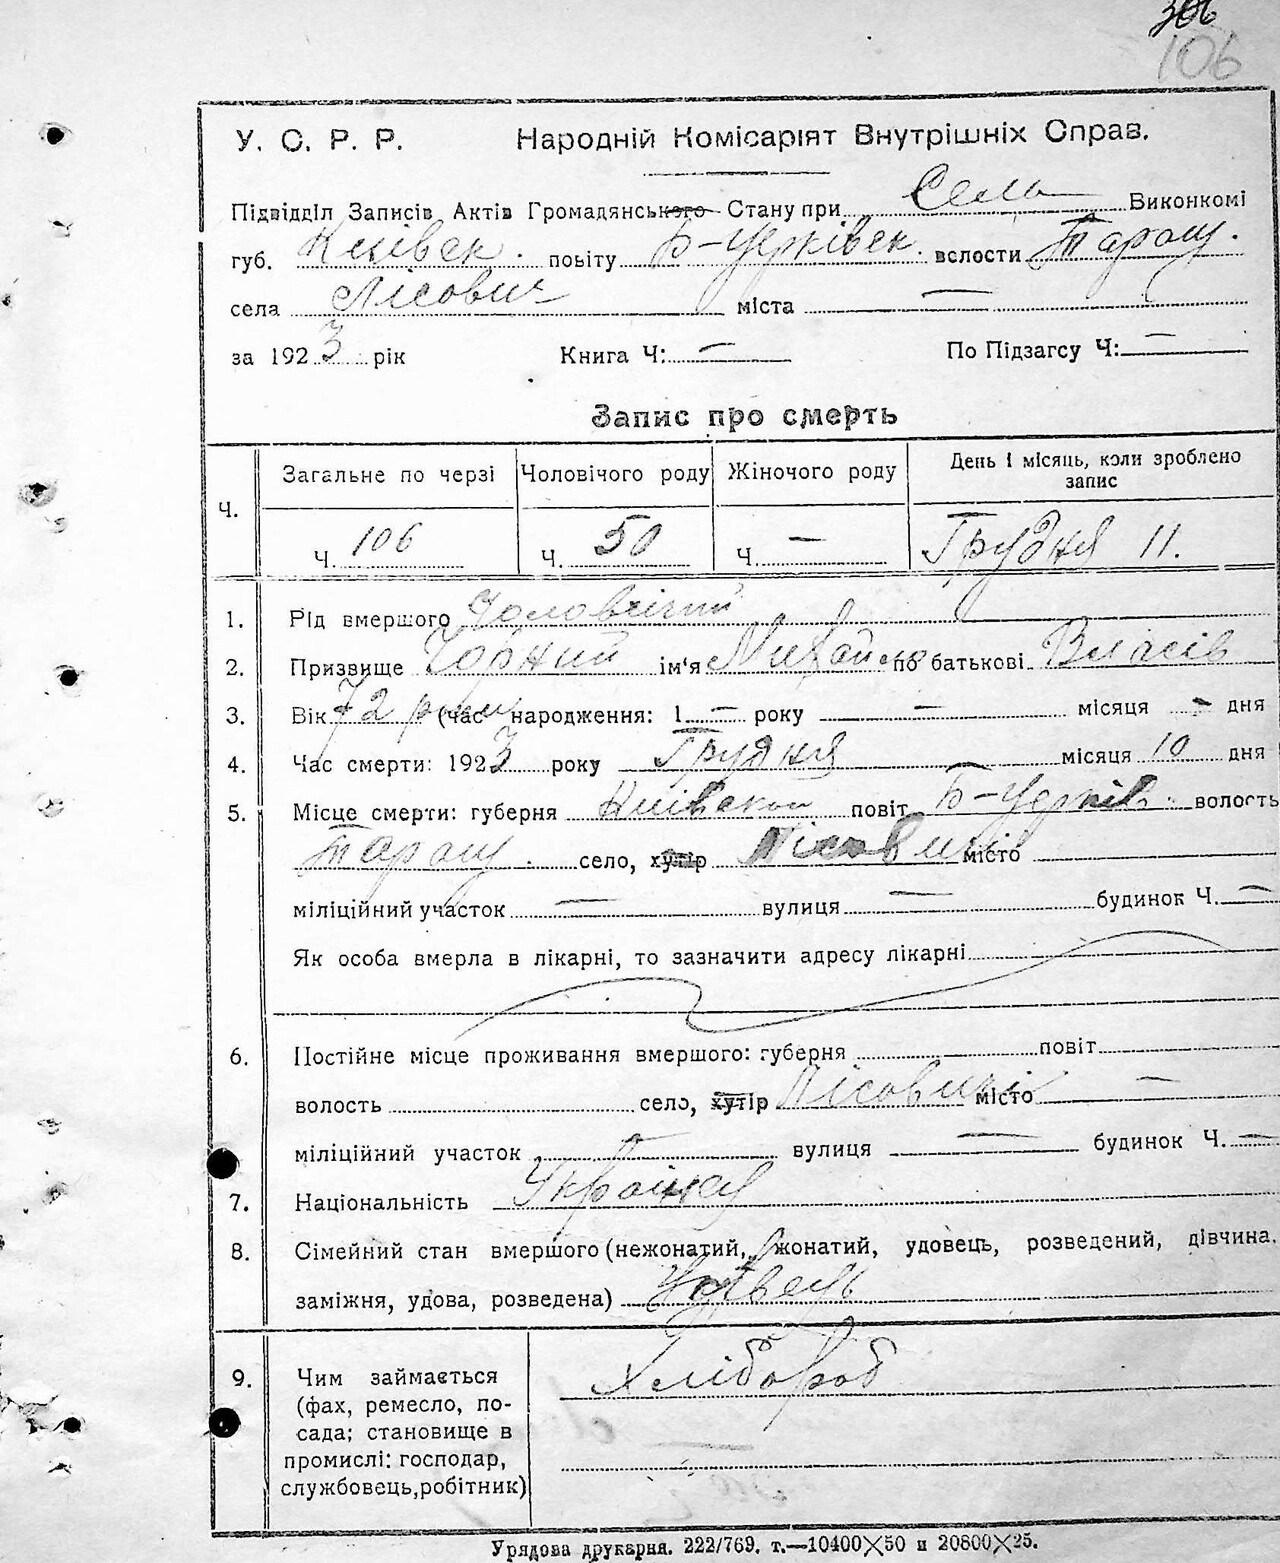 306
106
У. С. Р. Р. Народній Комісаріят Внутрішніх Справ.
Підвідділ Записів Актів Громадянського Стану при Сель Виконкомі
губ. Київск. повіту Б-Церківск. волости Таращ.
села Лісович міста —
за 1923 рік Книга Ч: — По Підзагсу Ч: —
Запис про смерть
Загальне по черзі Чоловічого роду Жіночого роду День і місяць, коли зроблено запис
Ч. Ч. 106 Ч. 50 Ч. — Грудня 11.
1. Рід вмершого Чоловічий
2. Призвище Чорний ім'я Михайло по батькові Власів
3. Вік 72 роки (час народження: 1 — року — місяця — дня
4. Час смерти: 1923 року Грудня місяця 10 дня
5. Місце смерти: губерня Київской повіт Б-Церків. волость
Таращ. село, хутір Лісовичі місто
міліційний участок — вулиця — будинок Ч. —
Як особа вмерла в лікарні, то зазначити адресу лікарні
6. Постійне місце проживання вмершого: губерня повіт
волость село, хутір Лісовичі місто —
міліційний участок — вулиця — будинок Ч. —
7. Національність
8. Сімейний стан вмершого (нежонатий, жонатий, удовець, розведений, дівчина,
заміжня, удова, розведена) Удовець
9. Чим займається Хлібороб
(фах, ремесло, по-
сада; становище в
промислі: господар,
службовець, робітник)
Урядова друкарня. 222/769. т.—10400×50 и 20800×25.